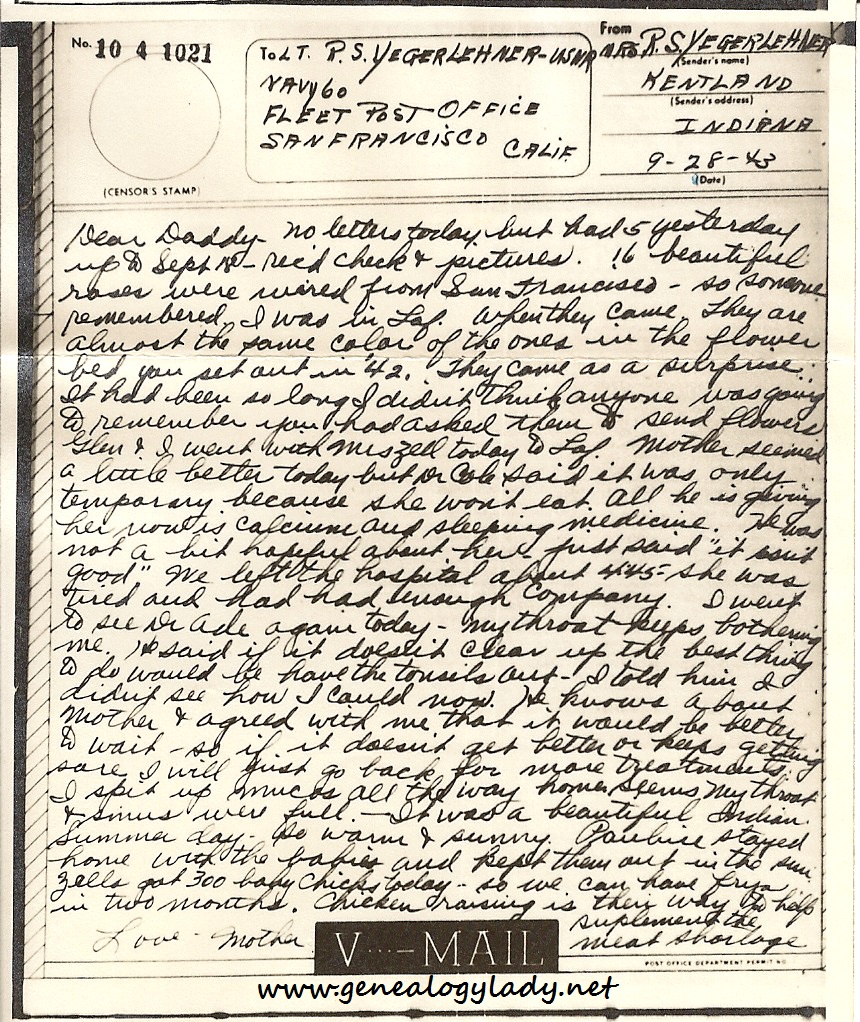 No. 10 4 1021
(CENSOR'S STAMP)
To LT. R. S. YEGERLEHNER-USNR
NAVY 60
FLEET POST OFFICE
SAN FRANCISCO
CALIF.
From
MRS. R. S. YEGERLEHNER
(Sender's name)
KENTLAND
(Sender's address)
INDIANA
9-28-43
(Date)
Dear Daddy - No letters today but had 5 yesterday
up to Sept - rec'd check & pictures. 16 beautiful
roses were wired from San Francisco - so someone
remembered. I was in Laf. when they came. They are
almost the same color of the ones in the flower
bed you set out in '42. They came as a surprise.
It had been so long I didn't think anyone was going
to remember you had asked them to send flowers
Glen & I went with Mrs Zell today to Laf. Mother seemed
a little better today but Dr Cole said it was only
temporary because she won't eat. All he is giving
her now is calcium and sleeping medicine. He was
not a bit hopeful about her. Just said "it isn't
good" We left the hospital about 4:45 - she was
tired and had had enough company. I went
to see Dr Ade again today - my throat keeps bothering
me. He said if it doesn't clear up the best thing
to do would be have the tonsils out - I told him I
didn't see how I could now. He knows about
Mother & agreed with me that it would be better
to wait - so if it doesn't get better or keeps getting
sore I will just go back for more treatments.
I spit up mucos all the way home seems my throat
& sinus were full. - It was a beautiful Indian
Summer day - so warm & sunny. Pauline stayed
home with the babies and kept them out in the sun
Zells got 300 baby chicks today - so we can have frys
in two months. Chicken raising is their way to help
suplement the
meat shortage
Love - Mother
V···—MAIL
POST OFFICE DEPARTMENT PERMIT NO.
www.genealogylady.net